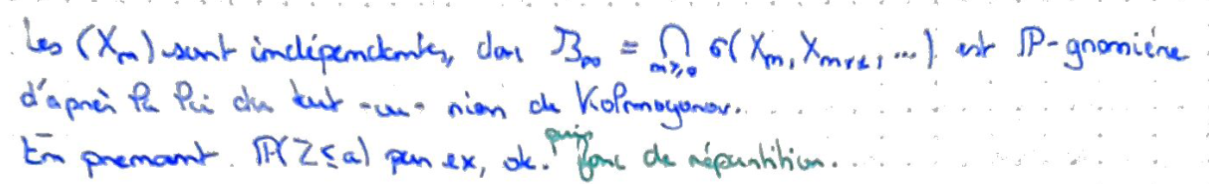 Les (Xₙ) sont indépendantes, donc 𝓑_∞ = ⋂_{n≥0} σ(Xₙ, Xₙ₊₁, ...) est ℙ-grossière
d'après la loi du tout-ou-rien de Kolmogorov.
En prenant ℙ(Z ≤ a) par ex, ok. puis fonc de répartition.